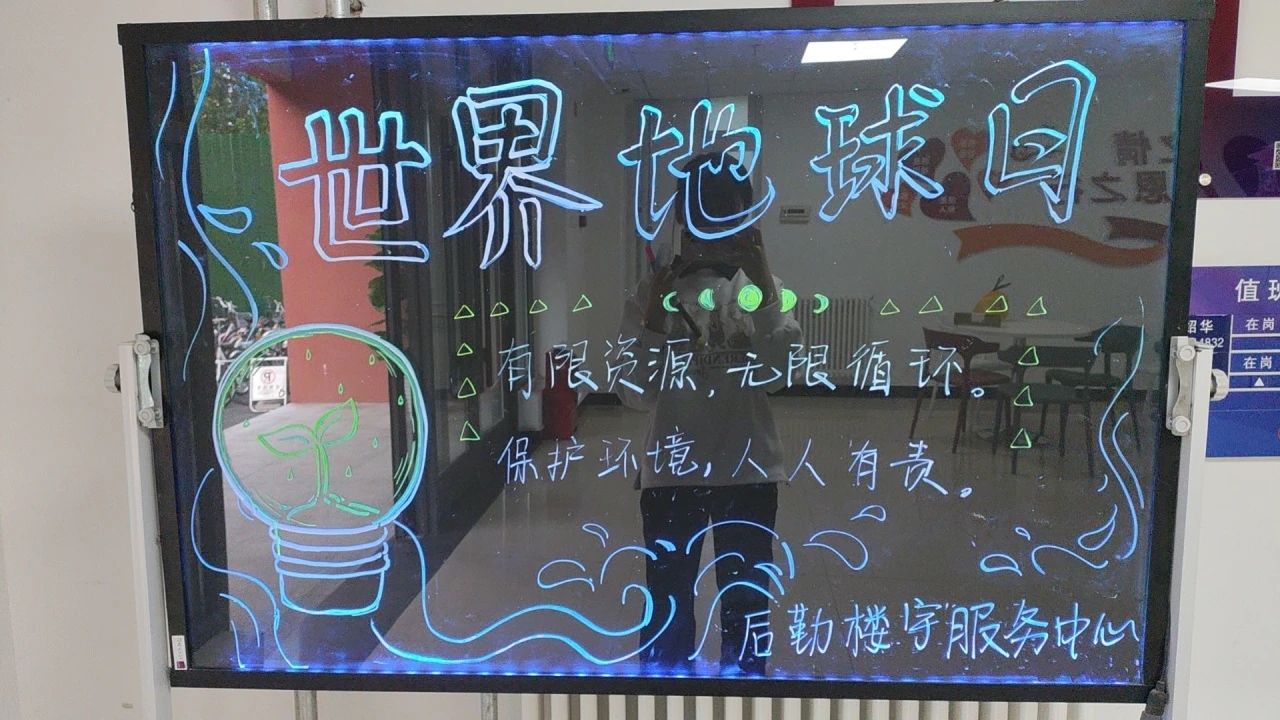 世界地球日
有限资源,无限循环。
保护环境,人人有责。
后勤楼宇服务中心
值班
韶华
4832
在岗
在岗